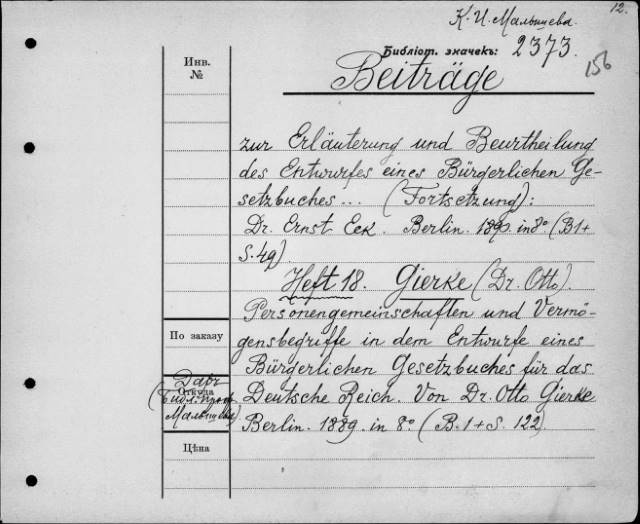 12.
К. И. Малышева.
Библіот. значекъ: 2373.
156
Инв.
№
Beiträge
zur Erläuterung und Beurtheilung
des Entwurfes eines Bürgerlichen Ge-
setzbuches... (Fortsetzung):
Dr. Ernst Eck. Berlin. 1890. in 8º (B1+
S. 49)
Heft 18. Gierke (Dr. Otto).
Personengemeinschaften und Vermö-
gensbegriffe in dem Entwurfe eines
Bürgerlichen Gesetzbuches für das
Deutsche Reich. Von Dr. Otto Gierke
Berlin. 1889. in 8º (B. 1+S. 122).
По заказу
Даръ
Откуда
(Библ. проф
Малышева)
Цѣна